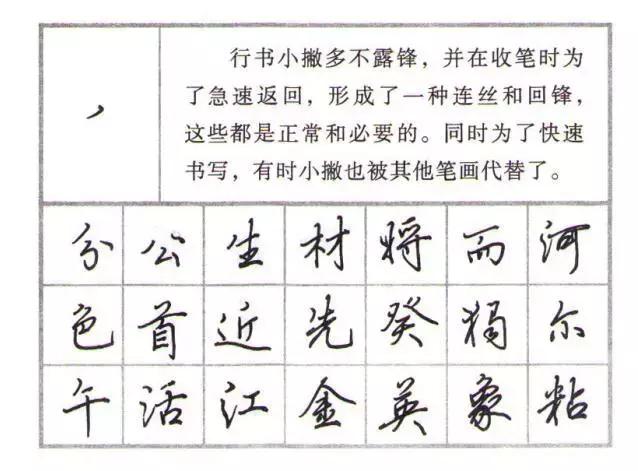 行书小撇多不露锋，并在收笔时为
了急速返回，形成了一种连丝和回锋，
这些都是正常和必要的。同时为了快速
书写，有时小撇也被其他笔画代替了。
分公生材将而河
色首近先癸獨尔
午活江金英象粘